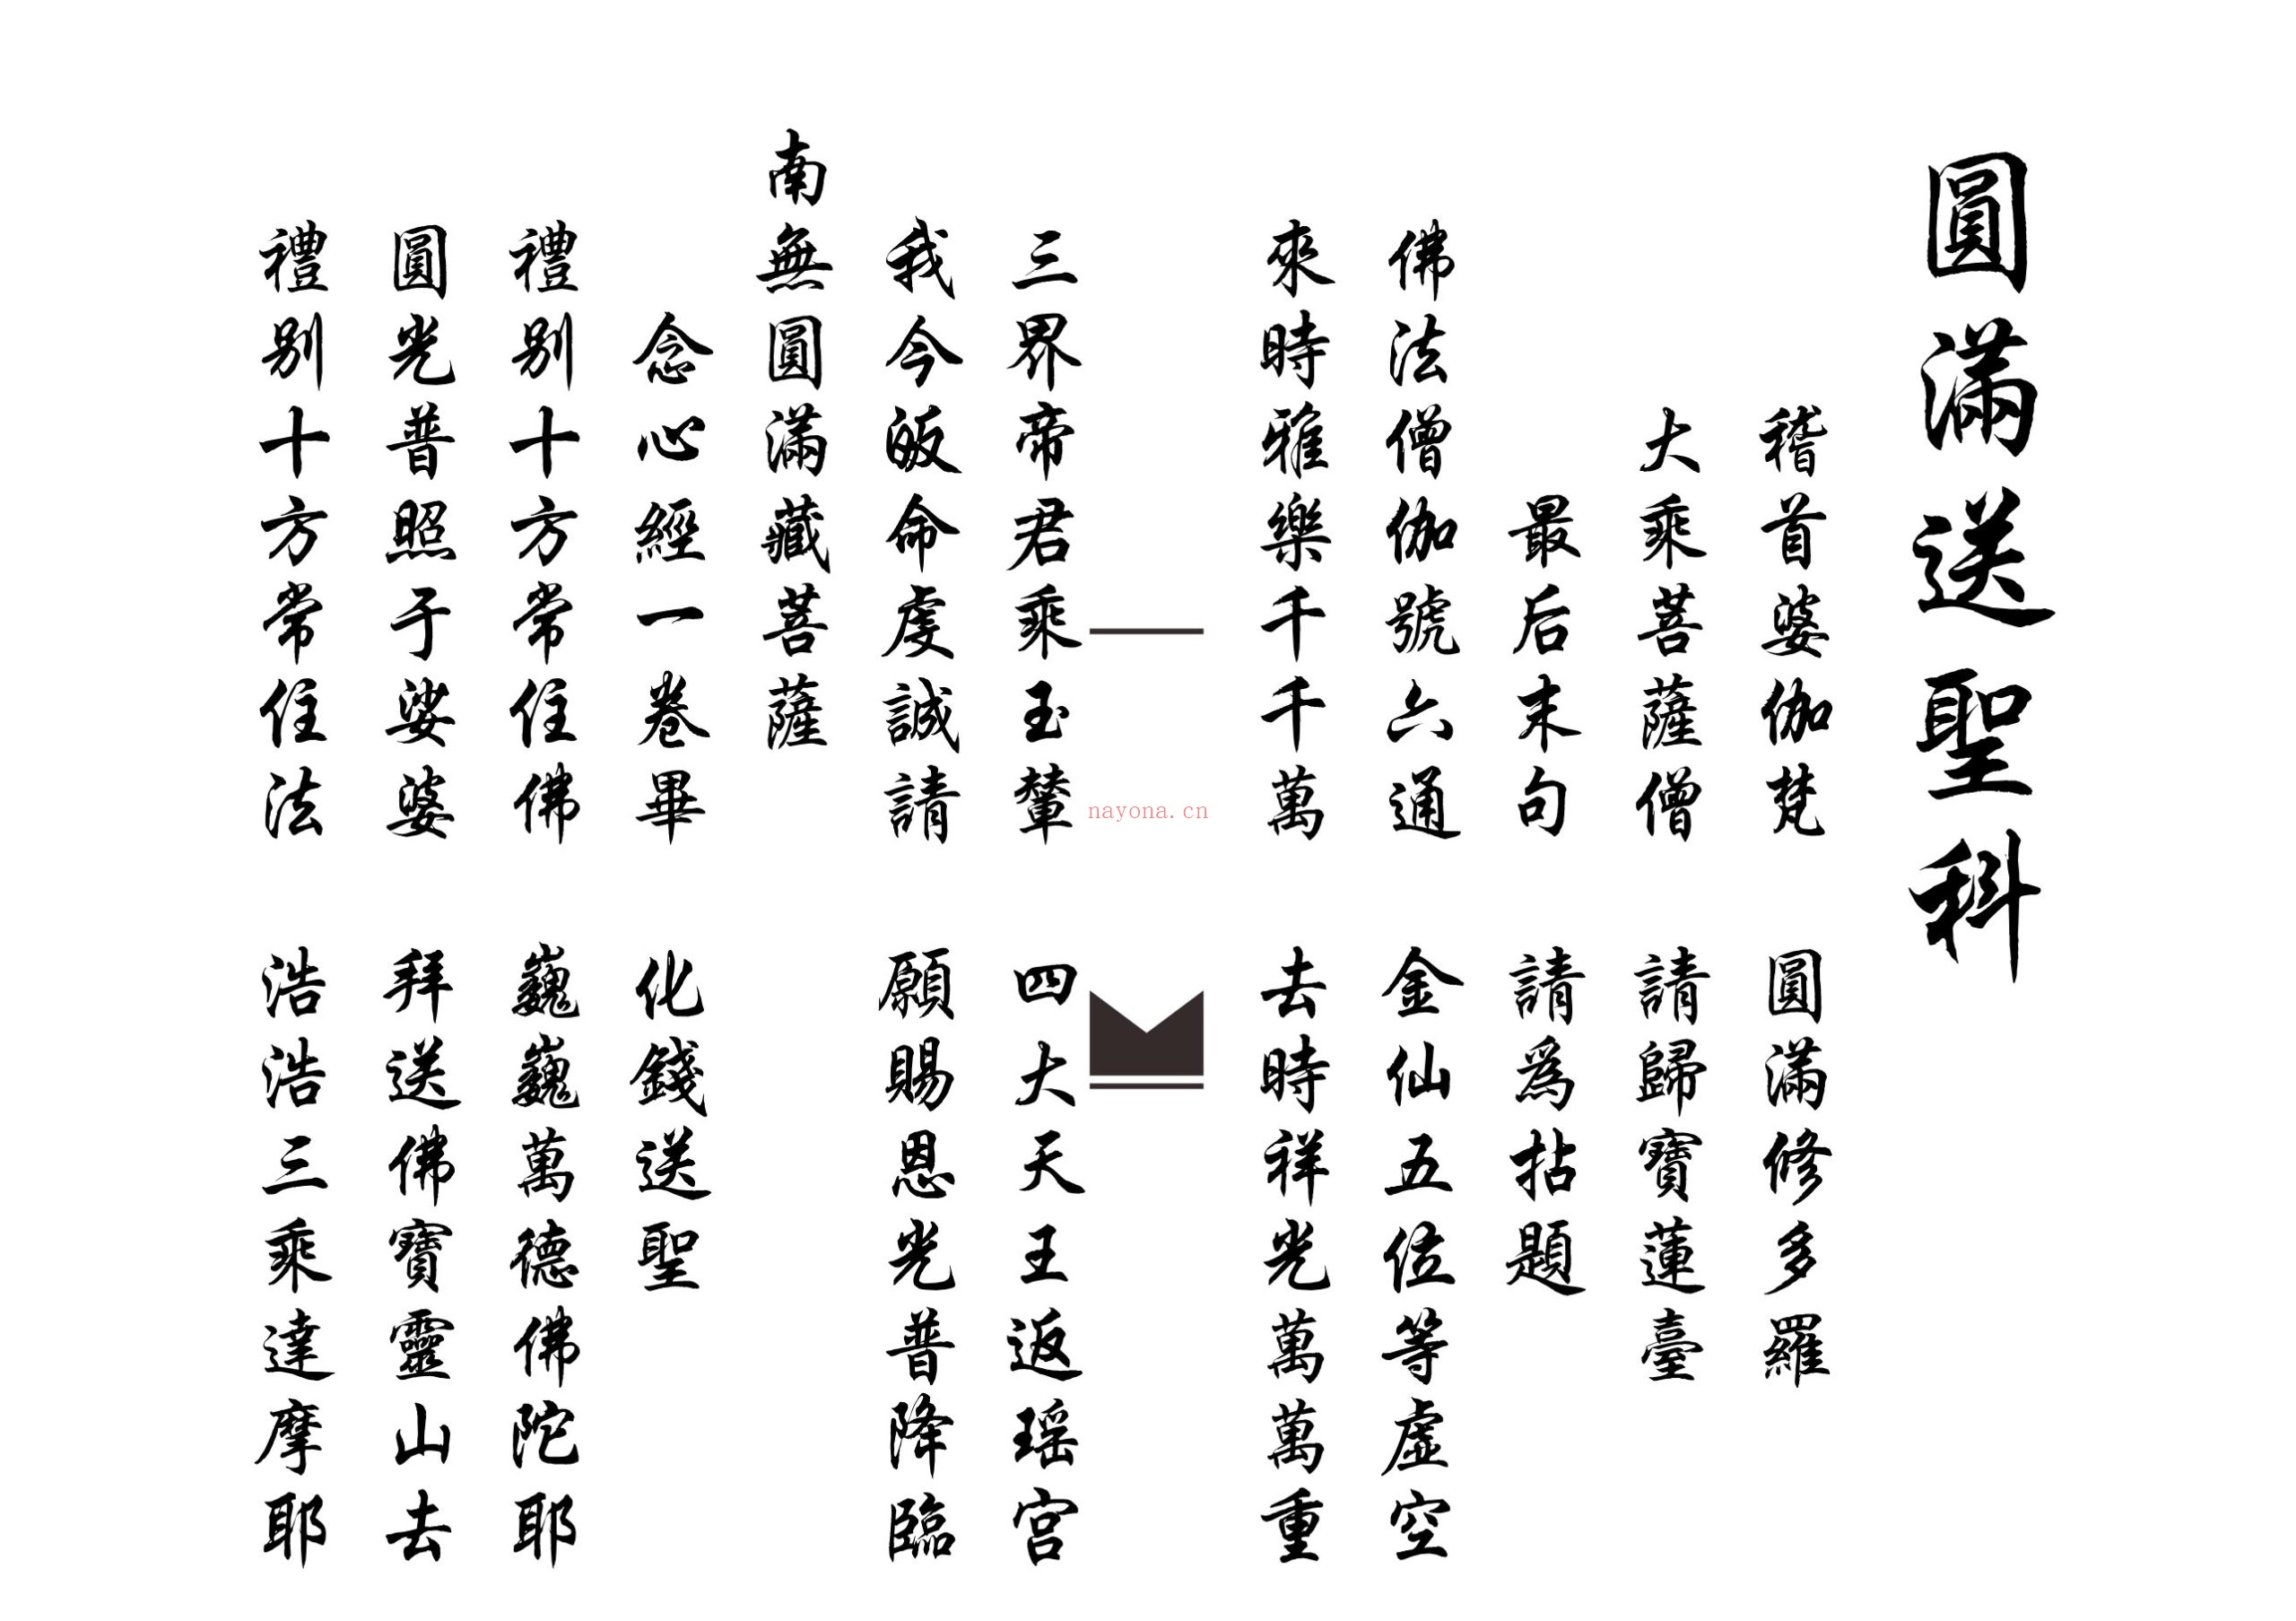 圓滿送聖科
稽首婆伽梵　圓滿修多羅
大乘菩薩僧　請歸寶蓮臺
最后末句　請為拈題
佛法僧伽號六通　金仙五位等虛空
來時雅樂千千萬　去時祥光萬萬重
nayona.cn
三界帝君乘玉輦　四大天王返瑶宫
我今皈命虔誠請　願賜恩光普降臨
南無圓滿藏菩薩
念心經一卷畢　化錢送聖
禮别十方常住佛　巍巍萬德佛陀耶
圓光普照于娑婆　拜送佛寶靈山去
禮别十方常住法　浩浩三乘達摩耶